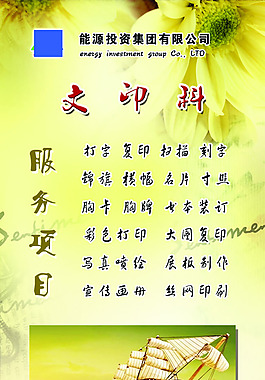 能源投资集团有限公司
energy investment group Co., LTD
文印科
服务项目
打字 复印 扫描 刻字
锦旗 横幅 名片 寸照
胸卡 胸牌 书本装订
彩色打印 大图复印
写真喷绘 展板制作
宣传画册 丝网印刷